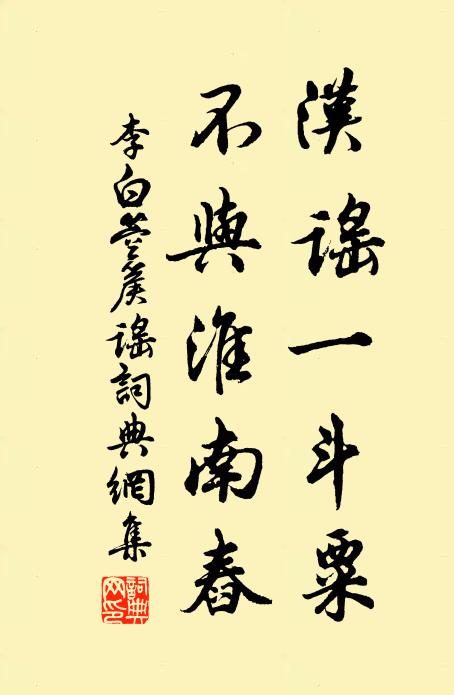 漢謠一斗粟
不與淮南舂
李白箜篌謠詞典網集